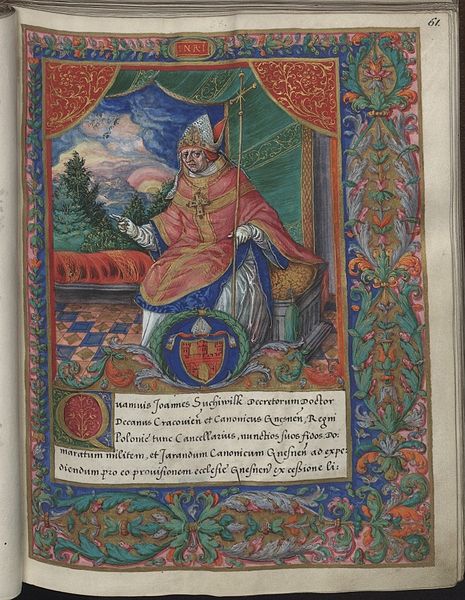 61.
INRI
Quamvis Joannes Suchiwilk Decretorum Doctor
Decanus Cracovien et Canonicus Gnesnen, Regni
Polonie tunc Cancellarius, nunctios suos fidos Do-
maratum militem, et Jarandum Canonicum Gnesnen ad expe-
diendum pro eo provisionem ecclesie Gnesnen ex cessione li: